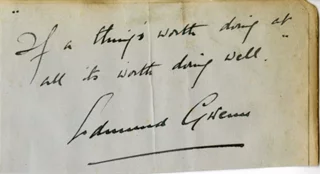 "If a thing's worth doing at
all its worth doing well."
Edmund Gwenn